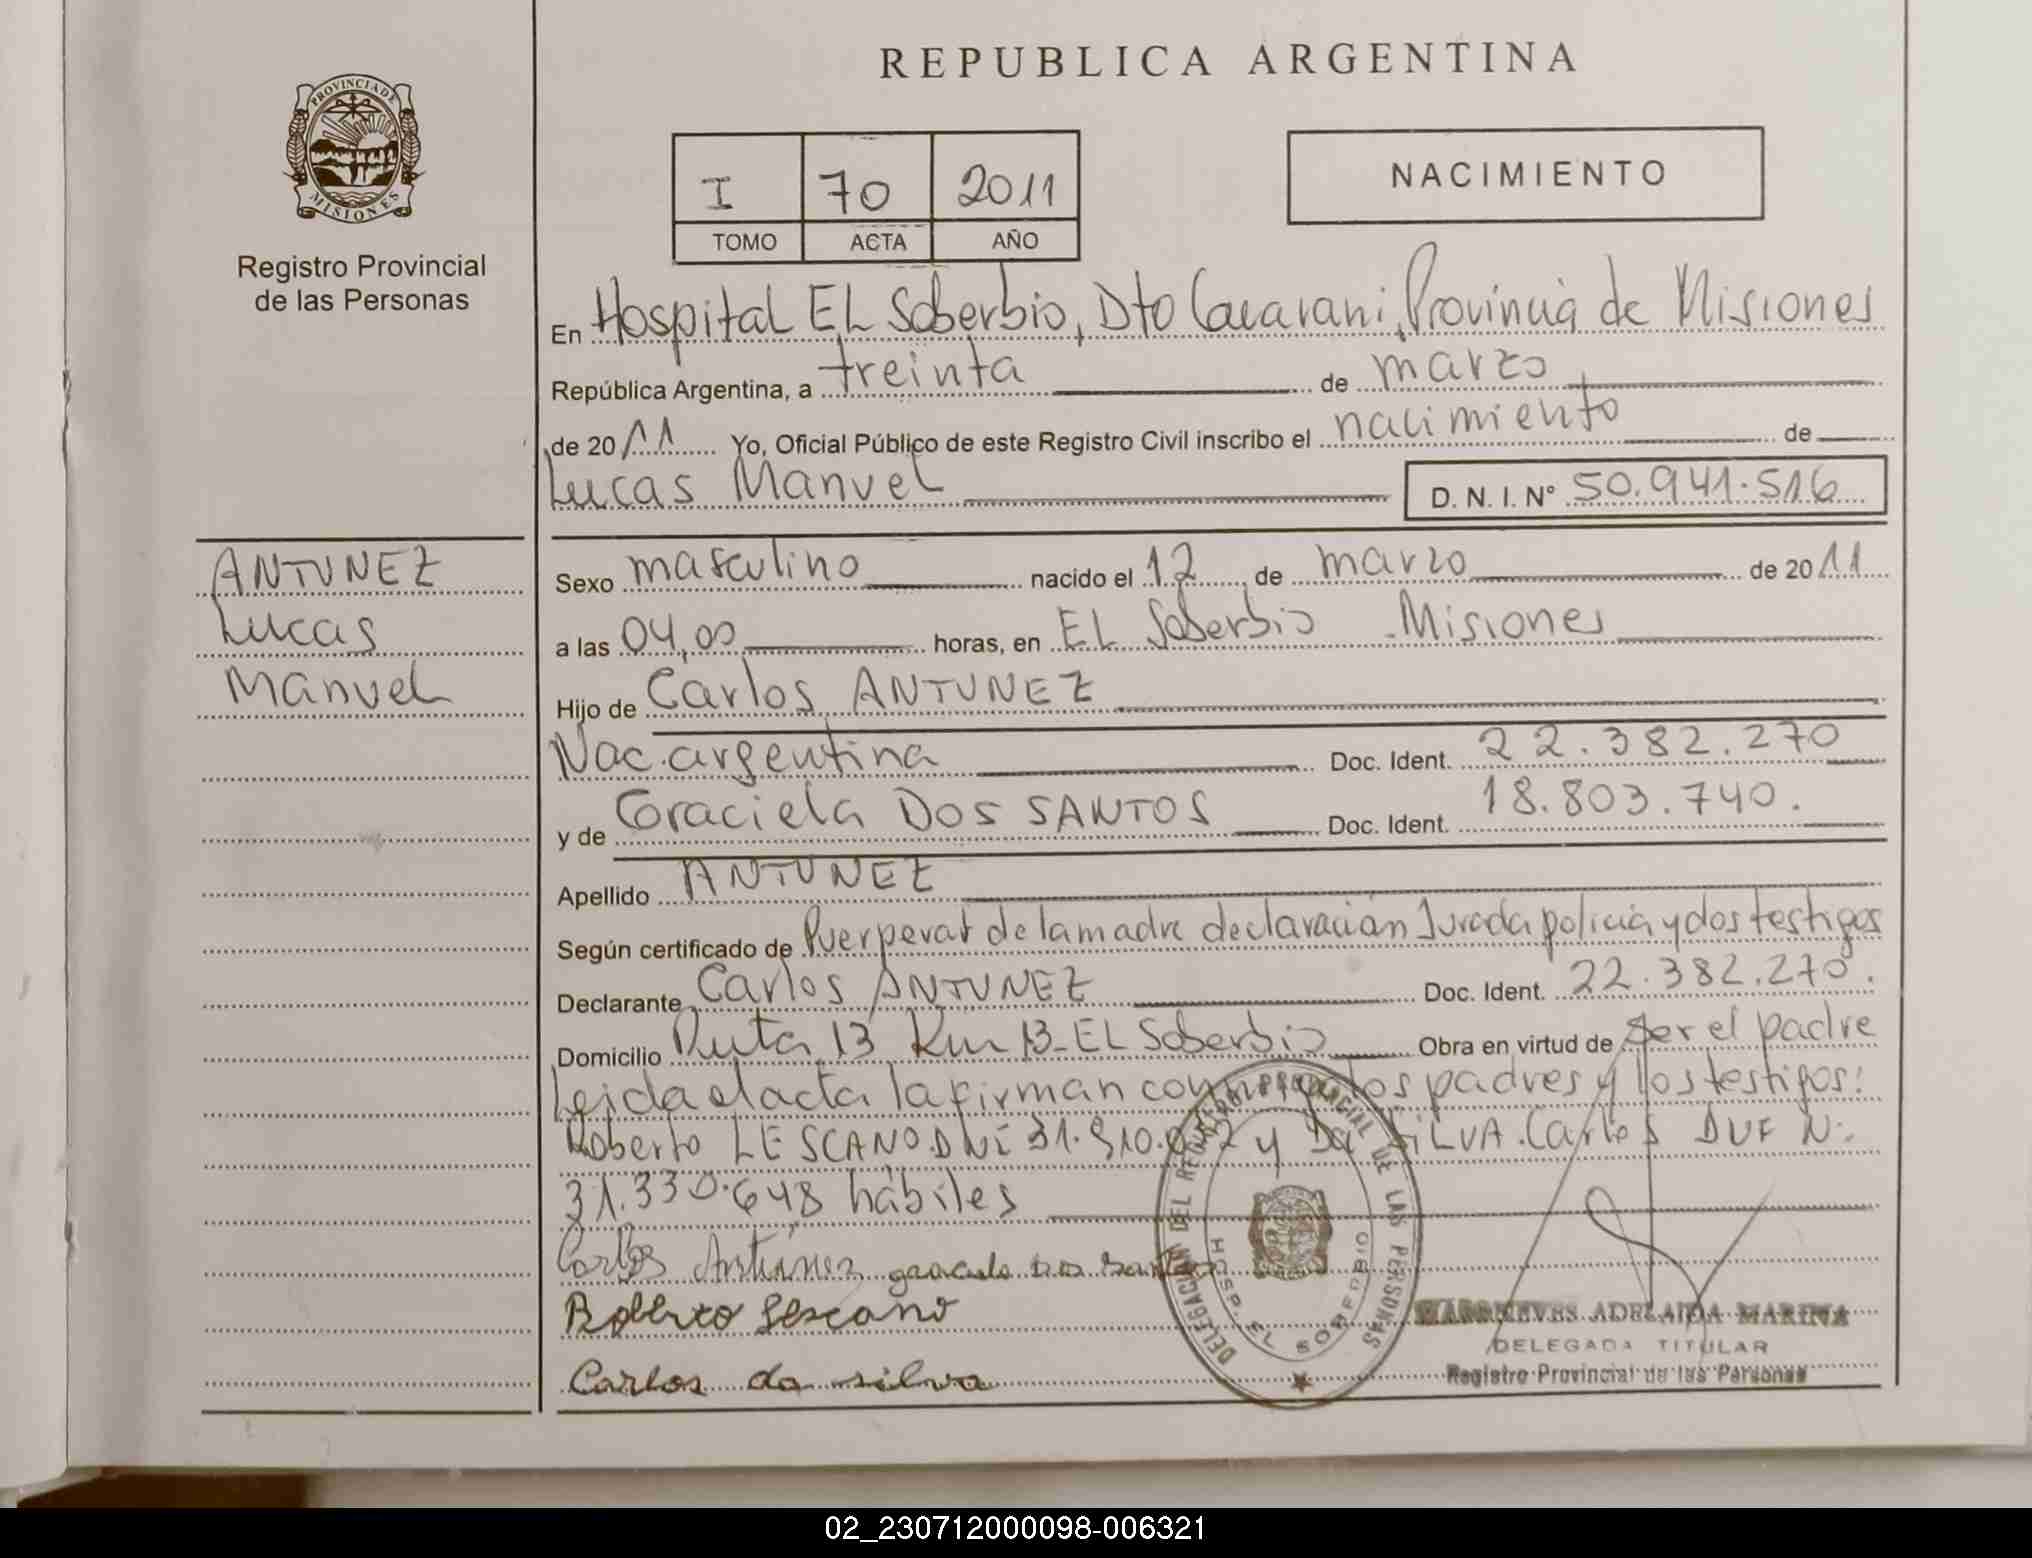 REPUBLICA ARGENTINA
PROVINCIA DE
MISIONES
Registro Provincial
de las Personas
I 70 2011
TOMO ACTA AÑO
NACIMIENTO
En Hospital EL Soberbio, Dto Guarani, Provincia de Misiones
República Argentina, a treinta de marzo
de 2011 Yo, Oficial Público de este Registro Civil inscribo el nacimiento de
Lucas Manuel D. N. I. Nº 50.941.516
ANTUNEZ
Lucas
Manuel
Sexo masculino nacido el 12 de marzo de 2011
a las 04,00 horas, en EL Soberbio - Misiones
Hijo de Carlos ANTUNEZ
Nac. argentina Doc. Ident. 22.382.270
y de Graciela DOS SANTOS Doc. Ident. 18.803.740.
Apellido ANTUNEZ
Según certificado de Puerperat de la madre declaración Jurada policia y dos testigos
Declarante Carlos ANTUNEZ Doc. Ident. 22.382.270.
Domicilio Ruta 13 Km 13 - EL Soberbio Obra en virtud de ser el padre
Leida el acta la firman los padres y los testigos:
Roberto LESCANO. DNI y Da SILVA. Carlos N:
31.330.648 habiles
Carlos Antunez graciela Dos Santos
Roberto Lescano
Carlos da silva
DELEGACION DEL REGISTRO PROVINCIAL DE LAS PERSONAS
HOSP. EL SOBERBIO
NIEVES ADELAIDA MARINA
DELEGADA TITULAR
Registro Provincial de las Personas
02_230712000098-006321